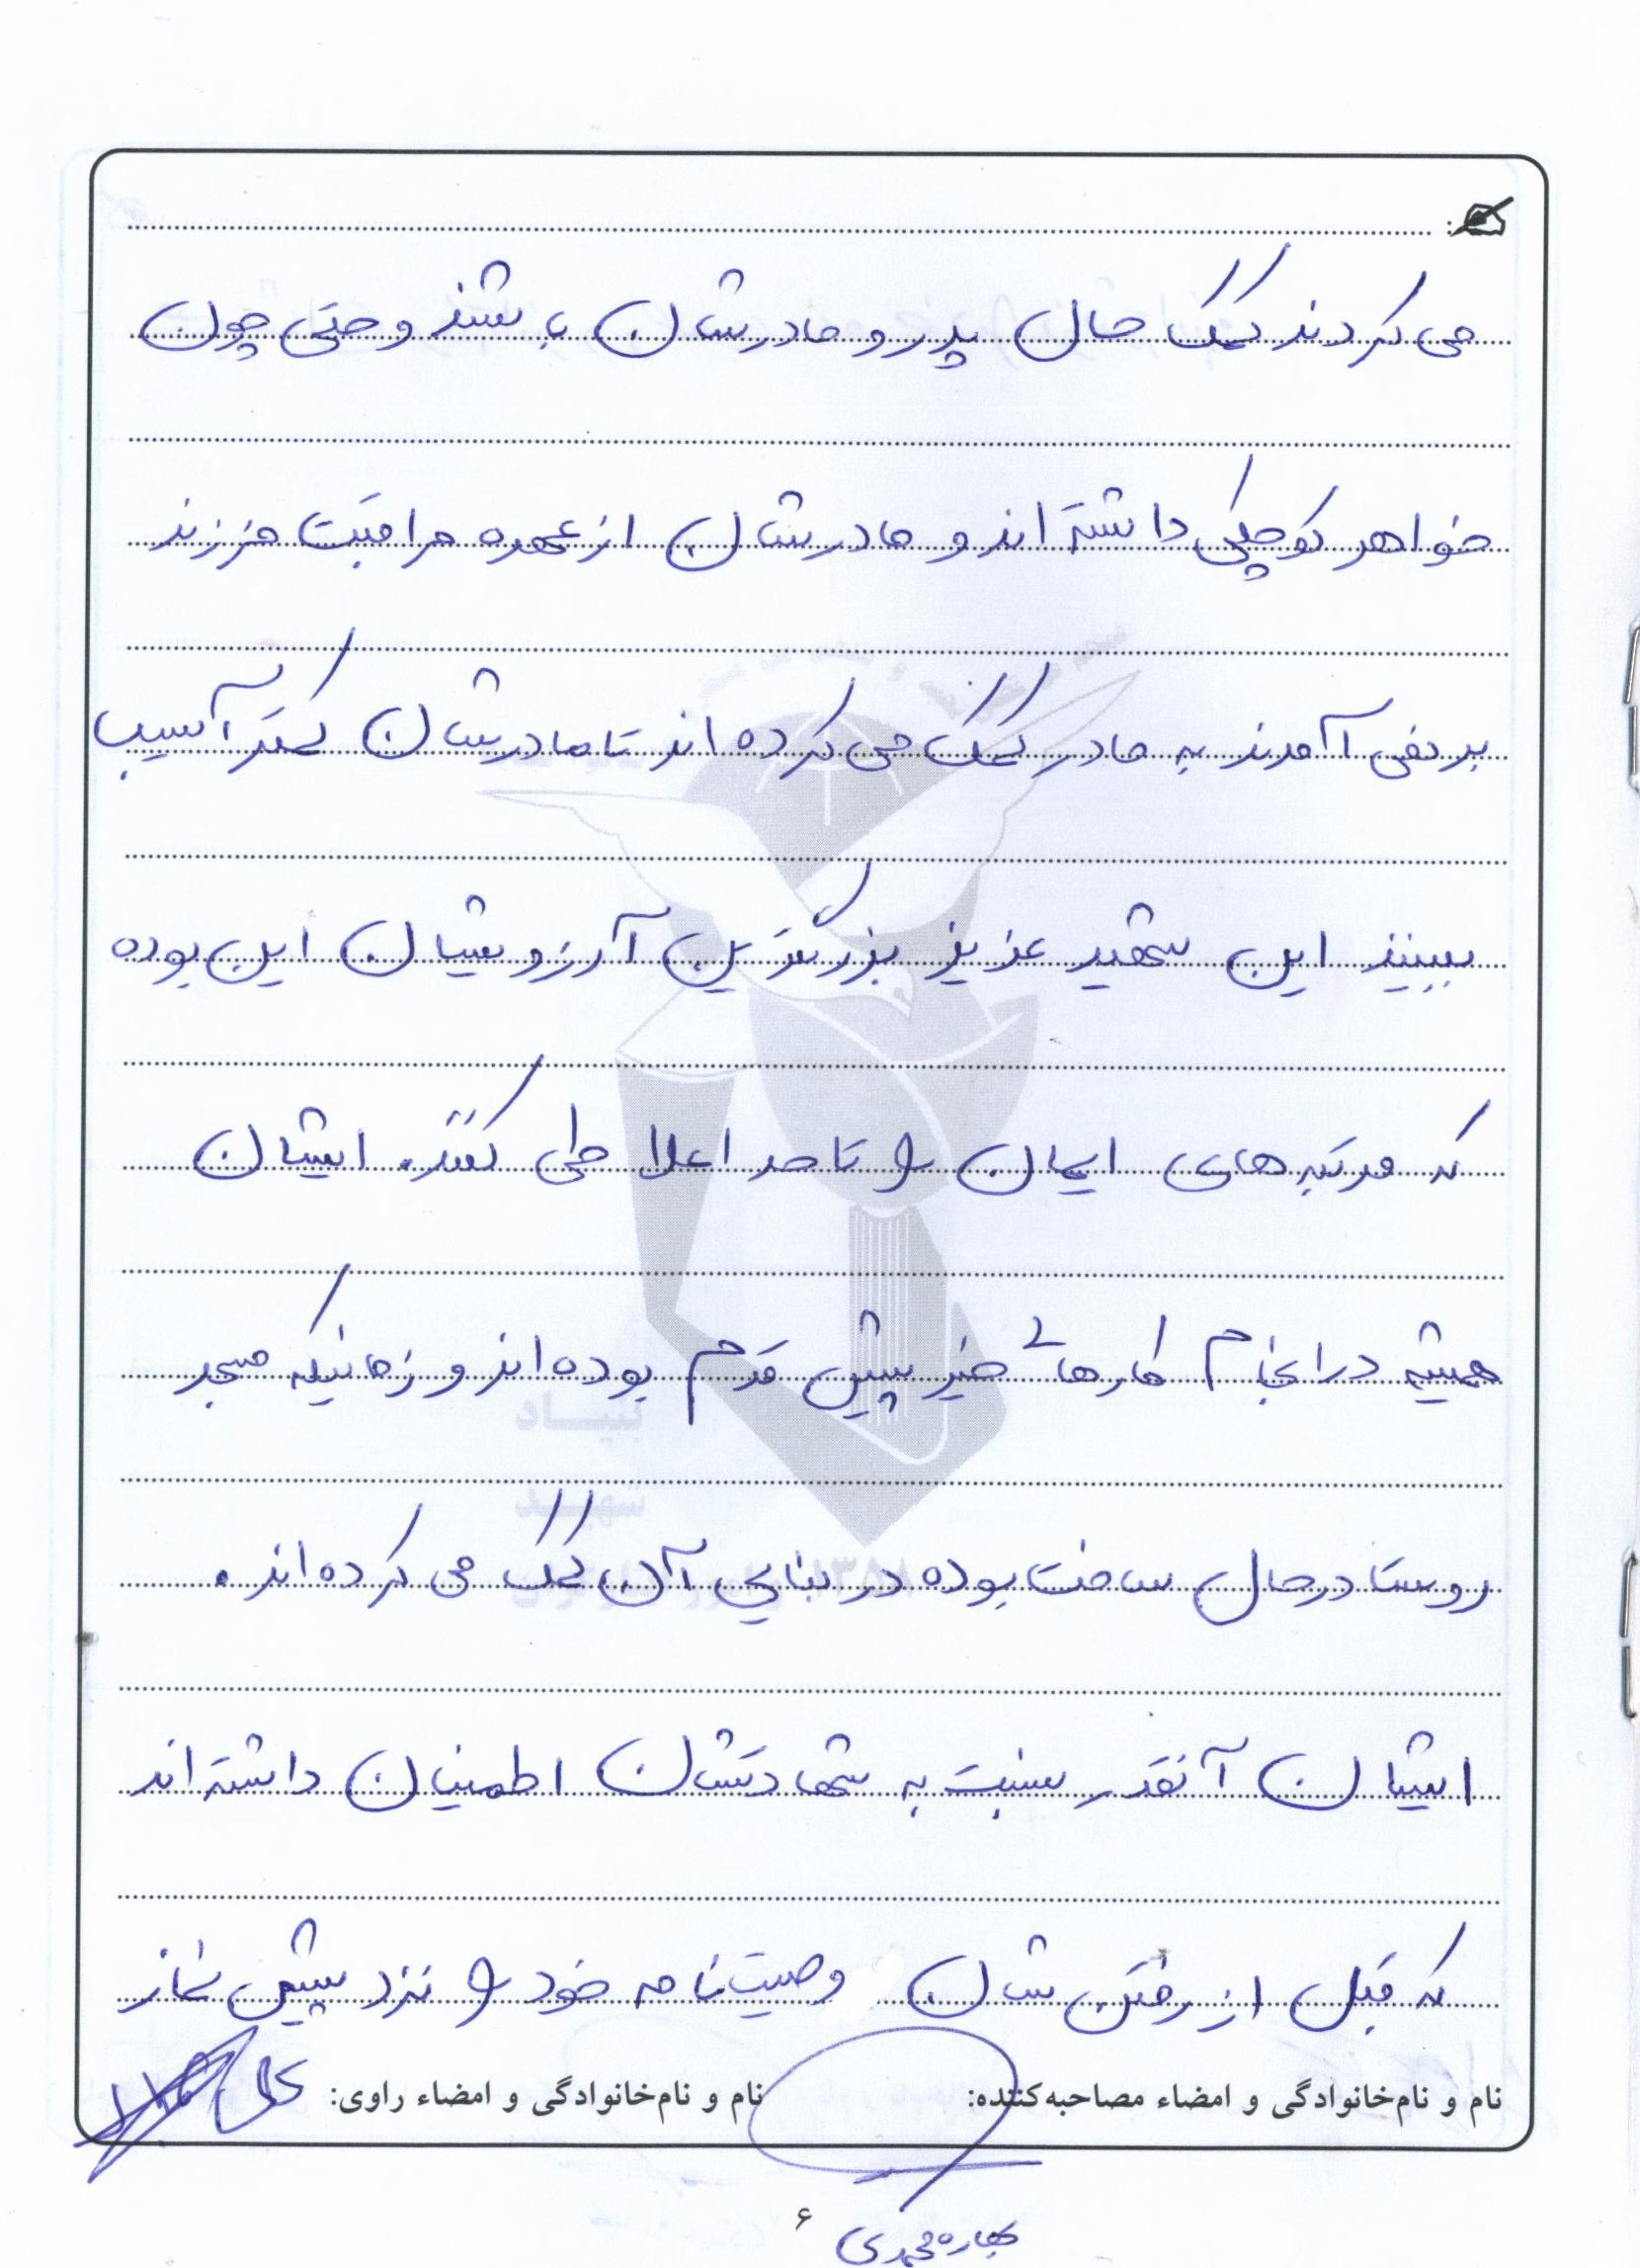 می کردند کمک حال پدر و مادرشان باشند و حتی چون
خواهر کوچکی داشته اند و مادرشان از عهده مراقبت فرزند
بر نمی آمدند به مادر کمک می کرده اند تا مادرشان کمتر آسیب
ببینند این شهید عزیز بزرگترین آرزوشان این بوده
که مرتبه های ایمان را تا حد اعلا طی کنند. ایشان
همیشه در انجام کارهای خیر پیش قدم بوده اند و زمانیکه مسجد
روستا در حال ساخت بوده در بنایی آن کمک می کرده اند.
ایشان آنقدر نسبت به شهادتشان اطمینان داشته اند
که قبل از رفتن شان وصیت نامه خود را نزد پیش نماز
نام و نام‌خانوادگی و امضاء مصاحبه‌کننده: نام و نام‌خانوادگی و امضاء راوی:
۶
بهاره محمدی
بنیاد
شهید